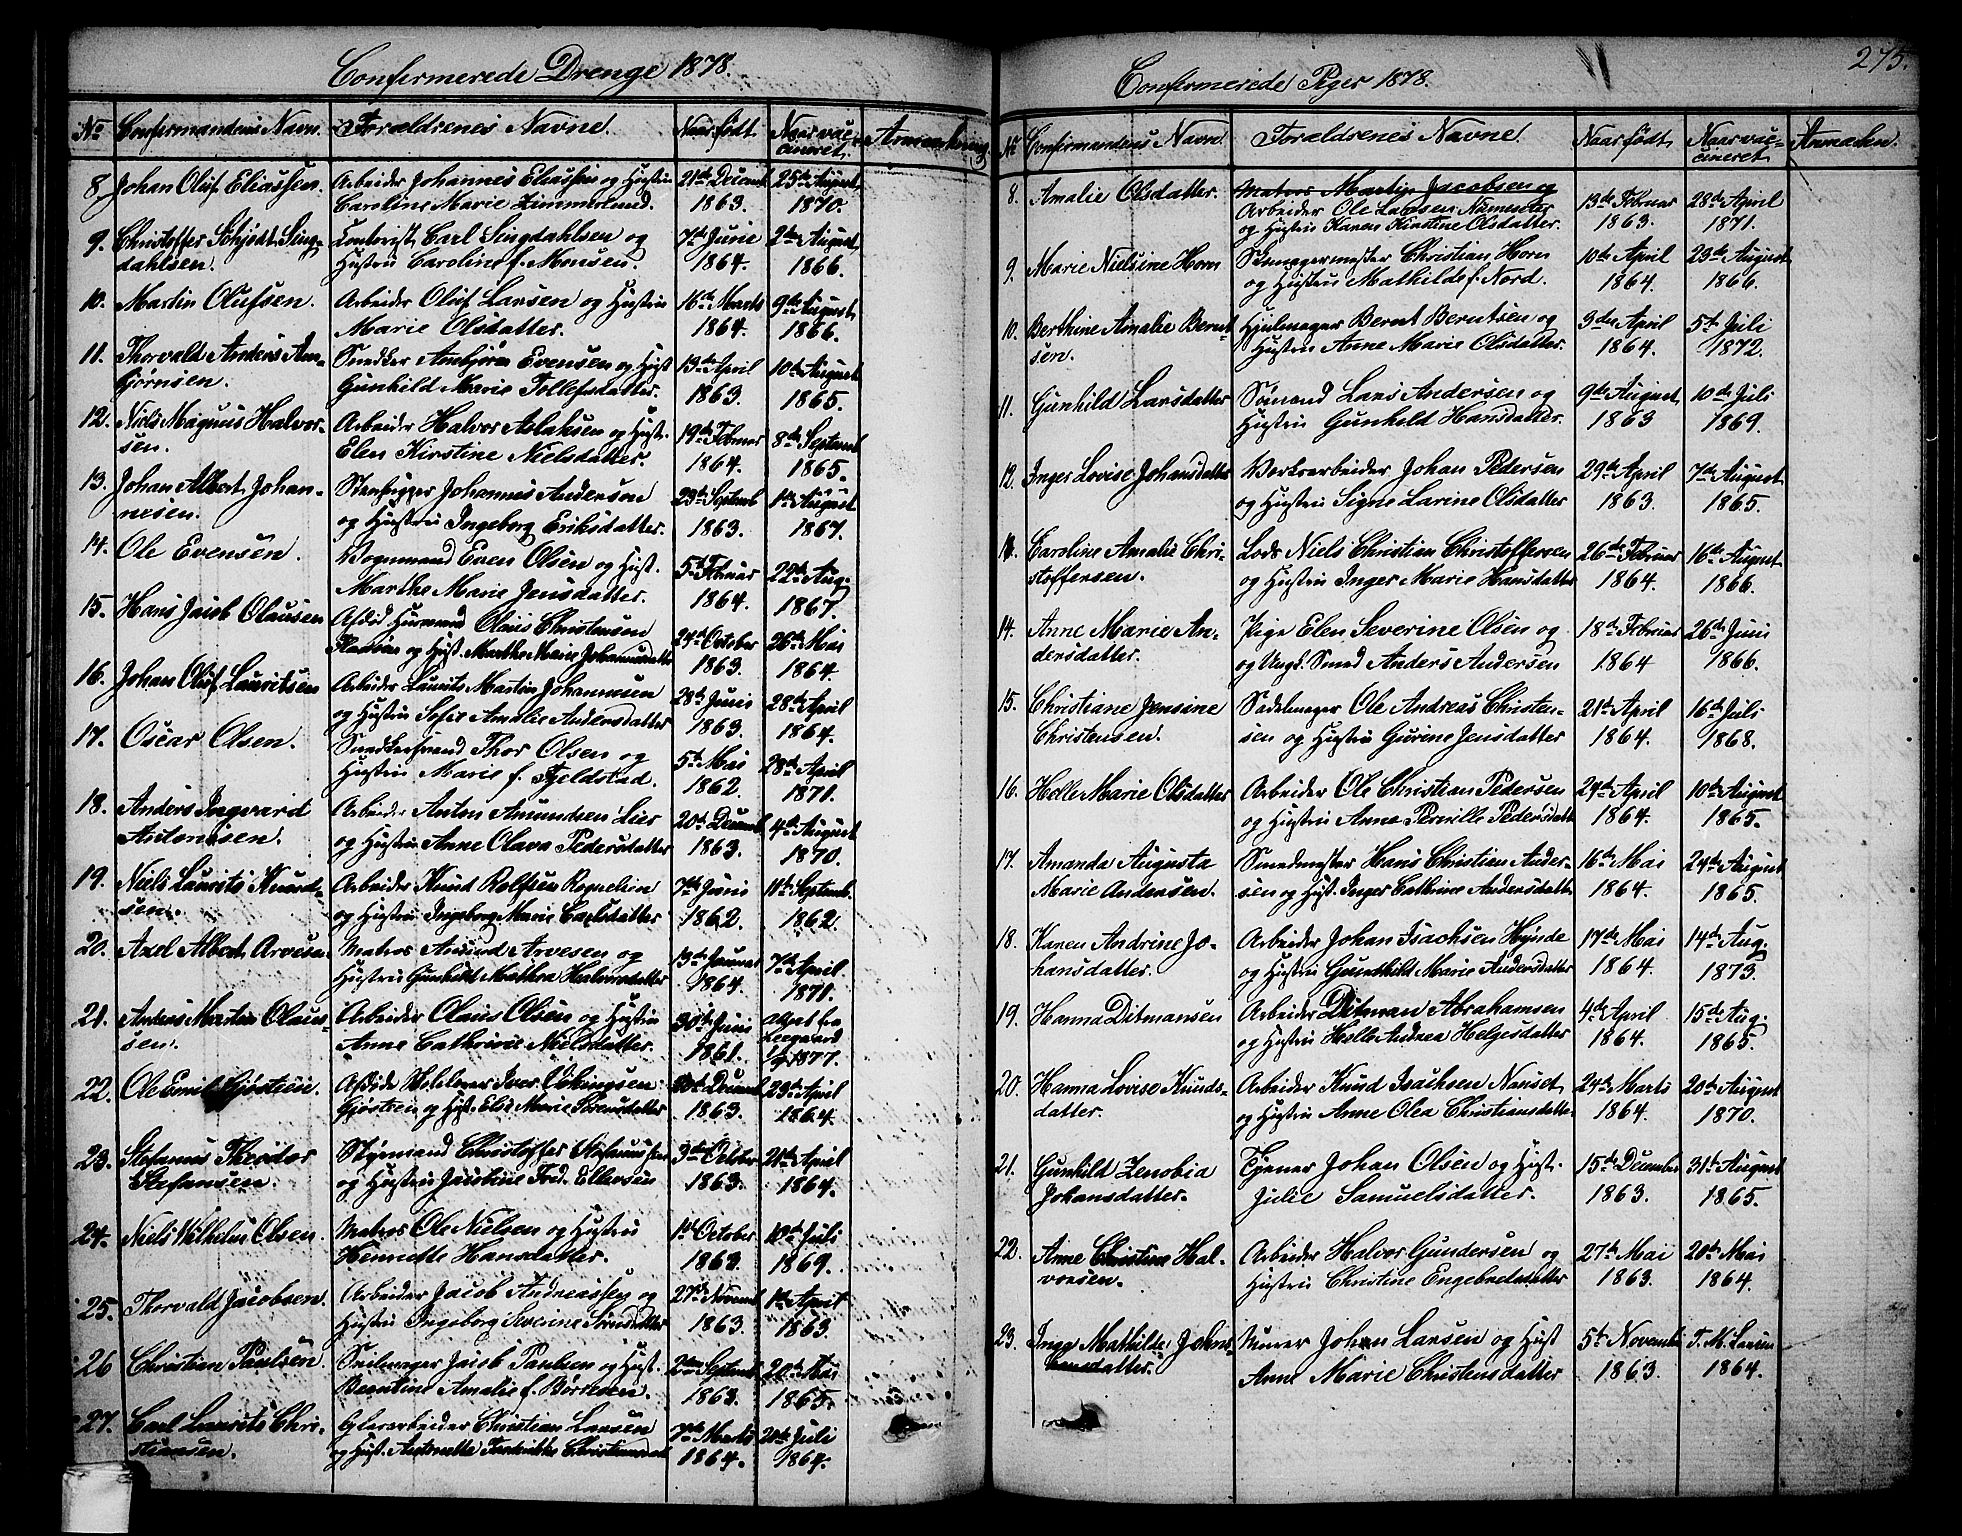 Confermerede Drenge 1878.
No Confermandens Navn. Forældrenes Navne. Naar født Naar vac-
cineret. Anmærkning
8. Johan Oluf Eliassen. Arbeider Johannes Eliassen og Hustru 21de Decemb 25de August
Caroline Marie Zimmerlund. 1863. 1870.
9. Christoffer Schjødt Sing- Contorist Carl Singdahlsen og 7de Junie 2den August
dahlsen. Hustru Caroline f. Monsen. 1864. 1866.
10. Martin Olufsen. Arbeider Oluf Larsen og Hustru 16de Marts 9de August
Marie Olsdatter. 1864. 1866.
11. Thorvald Anders Arn- Snedker Arnbjørn Evensen og Hust 13de April 10de August
bjørnsen. Gunhild Marie Tollefsdatter. 1863. 1865.
12. Niels Magnus Halvor- Arbeider Halvor Aslaksen og Hust. 19de Februar 8de Septemb
sen. Elen Kirstine Nielsdatter. 1864. 1865.
13. Johan Albert Johan- Johannes Andersen 23de Septemb 1ste August
nesen. og Hustru Ingeborg Eriksdatter. 1863. 1867.
14. Ole Evensen. Vognmand Even Olsen og Hust. 5te Februar 22de Aug.
Marthe Marie Jensdatter. 1864. 1867.
15. Hans Jacob Olausen Afdø Huusmand Olaus Christensen 24de October 26de Mai
og Hust. Marthe Marie Johannesdatter 1863. 1864.
16. Johan Oluf Lauritsen Arbeider Laurits Martin Johannesen 28de Junii 28de April
og Hustru Sofie Amalie Andersdatter 1863. 1864.
17. Oscar Olsen. Snedkersvend Thor Olsen og 5te Mai 28de April
Hustru Marie f. Fjeldstad. 1862. 1871.
18. Anders Ingvard Arbeider Anton Amundsen Lier 20de Decemb 4de August
Antonisen. og Hustru Anne Olava Pedersdatter 1863. 1870.
19. Niels Laurits Knud- Arbeider Knud Rolfsen 7de Junii 11te Septemb.
sen. og Hustru Ingeborg Marie Carlsdatter 1862. 1862.
20. Axel Albert Arvesen Matros Amund Arvesen og 13de Januar 7de April
Hustru Gunhild Mathea Halvorsdatter 1864. 1871.
21. Andreas Martin Olaus- Arbeider Olaus Olsen og Hustru 30te Junii
sen. Anne Cathrine Nielsdatter. 1861. 1877.
22. Ole Emil Gjøsteen. Afdøde Iver 30te Decemb 29de April
Gjøsteen og Hust. Else Marie Sørensdatter 1863. 1864.
23. Stefanus Theodor Styrmand Christoffer Stefanussen 3die October 21de April
Stefansen. og Hustru Jacobine Fred. Ellevsen 1863. 1864.
24. Niels Vilhelm Olsen. Matros Ole Nielsen og Hustru 1ste October 10de Juli
Hennette Hansdatter. 1863. 1869.
25. Thorvald Jacobsen. Arbeider Jacob Andreassen og 27de Novemb 1ste April
Hustru Ingeborg Severine Sørensdatter 1863. 1863.
26 Christian Paulsen. Seilmager Jacob Paulsen og Hust. 2den Septemb 20de Mai
Berntine Amalie f. Børresen. 1863. 1865.
27. Carl Laurits Chri- Glasarbeider Christian Larsen 7de Marts 20de Juli
stiansen. og Hust. Antonette Fredrikke Christiansdatter 1864. 1864.
275.
Confermerede Piger 1878.
No Confirmandens Navn Forældrenes Navne. Naar født Naar vac-
cineret Anmærkn.
8. Amalie Olsdatter. Matros Martin Jacobsen og 13de Februar 28de April
Arbeider Ole Larsen 1863. 1871.
og Hustru Karen Kirstine Olsdatter.
9. Marie Nielsine Horn Skomagermester Christian Horn 10de April 23de August
og Hustru Mathilde f. Nord. 1864. 1866.
10. Berthine Amalie Bernt- Hjulmager Bernt Berntsen og 3die April 5te Juli
sen. Hustru Anne Marie Olsdatter. 1864. 1872.
11. Gunhild Larsdatter Sømand Lars Andersen og 9de August 10de Juli
Hustru Gunhild Hansdatter. 1863 1869.
12. Inger Lovise Johansdatter Værksarbeider Johan Pedersen 29de April 7de August
og Hustru Signe Larine Olsdatter 1863. 1865.
13. Caroline Amalie Chri- Lods Niels Christian Christoffersen 26de Februar 16de August
stoffersen. og Hustru Inger Marie Hansdatter 1864. 1866.
14. Anne Marie An- Pige Elen Severine Olsen og 18de Februar 26de Juni
dersdatter. og Ungk. Smed Anders Andersen 1864 1866.
15. Christiane Jensine Sadelmager Ole Andreas Christen- 21de April 16de Juli
Christensen. sen og Hustru Gurine Jensdatter 1864. 1868.
16. Helle Marie Olsdatter Arbeider Ole Christian Pedersen 29de April 10de August
og Hustru Anne Pernille Pedersdatt 1864. 1865.
17. Amanda Augusta Smedmester Hans Christian Ander- 16de Mai 24de August
Marie Andersen. sen og Hust. Inger Cathrine Andersdatt. 1864. 1865.
18. Karen Andrine Jo- Arbeider Johan Isachsen Hynde 17de Mai 14de Aug.
hansdatter. og Hustru Gunhild Marie Andersdatter 1864. 1873.
19. Hanna Ditmansen Arbeider Ditman Abrahamsen 4de April 15de Aug.
og Hustru Helle Andrea Helgesdatter 1864. 1865.
20. Hanna Lovise Knuds- Arbeider Knud Isachsen Nanset 24de Marts 20de August
datter. og Hustru Anne Olea Christiansdatter. 1864. 1870.
21. Gunhild Zenobia Tjener Johan Olsen og Hust. 15de December 31te August
Johansdatter. Julie Samuelsdatter. 1863. 1865.
22. Anne Christine Hal- Arbeider Halvor Gundersen og 27de Mai 20de Mai
vorsen. Hustru Christine Engebretsdatter 1863. 1864.
23. Inga Mathilde Johns- Murer Johan Larsen og Hust 5te Novemb
datter. Anne Marie Christensdatter 1863. 1864.